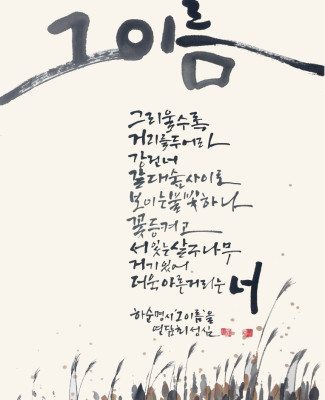 그 이름
그리울수록
거리를 두어라
강 건너
갈대숲 사이로
보이는 불빛 하나
꽃등 켜고
서 있는 살구나무
거기 있어
더욱 아른거리는 너
하순명 시 그 이름을